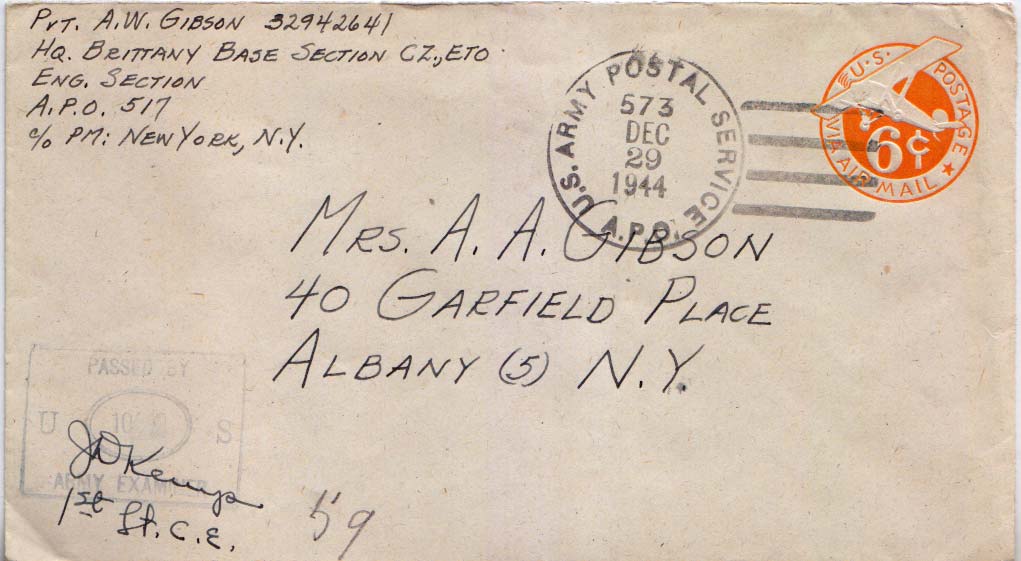 Pvt. A.W. Gibson 32942641
Hq. Brittany Base Section CZ., ETO
Eng. Section
A.P.O. 517
c/o PM: New York, N.Y.
U.S. ARMY POSTAL SERVICE
573
DEC
29
1944
A.P.O.
U.S. POSTAGE
6¢
VIA AIR MAIL
Mrs. A. A. Gibson
40 Garfield Place
Albany (5) N.Y.
PASSED BY
U S
ARMY EXAMINER
JD Kemp
1st Lt. C.E.
59